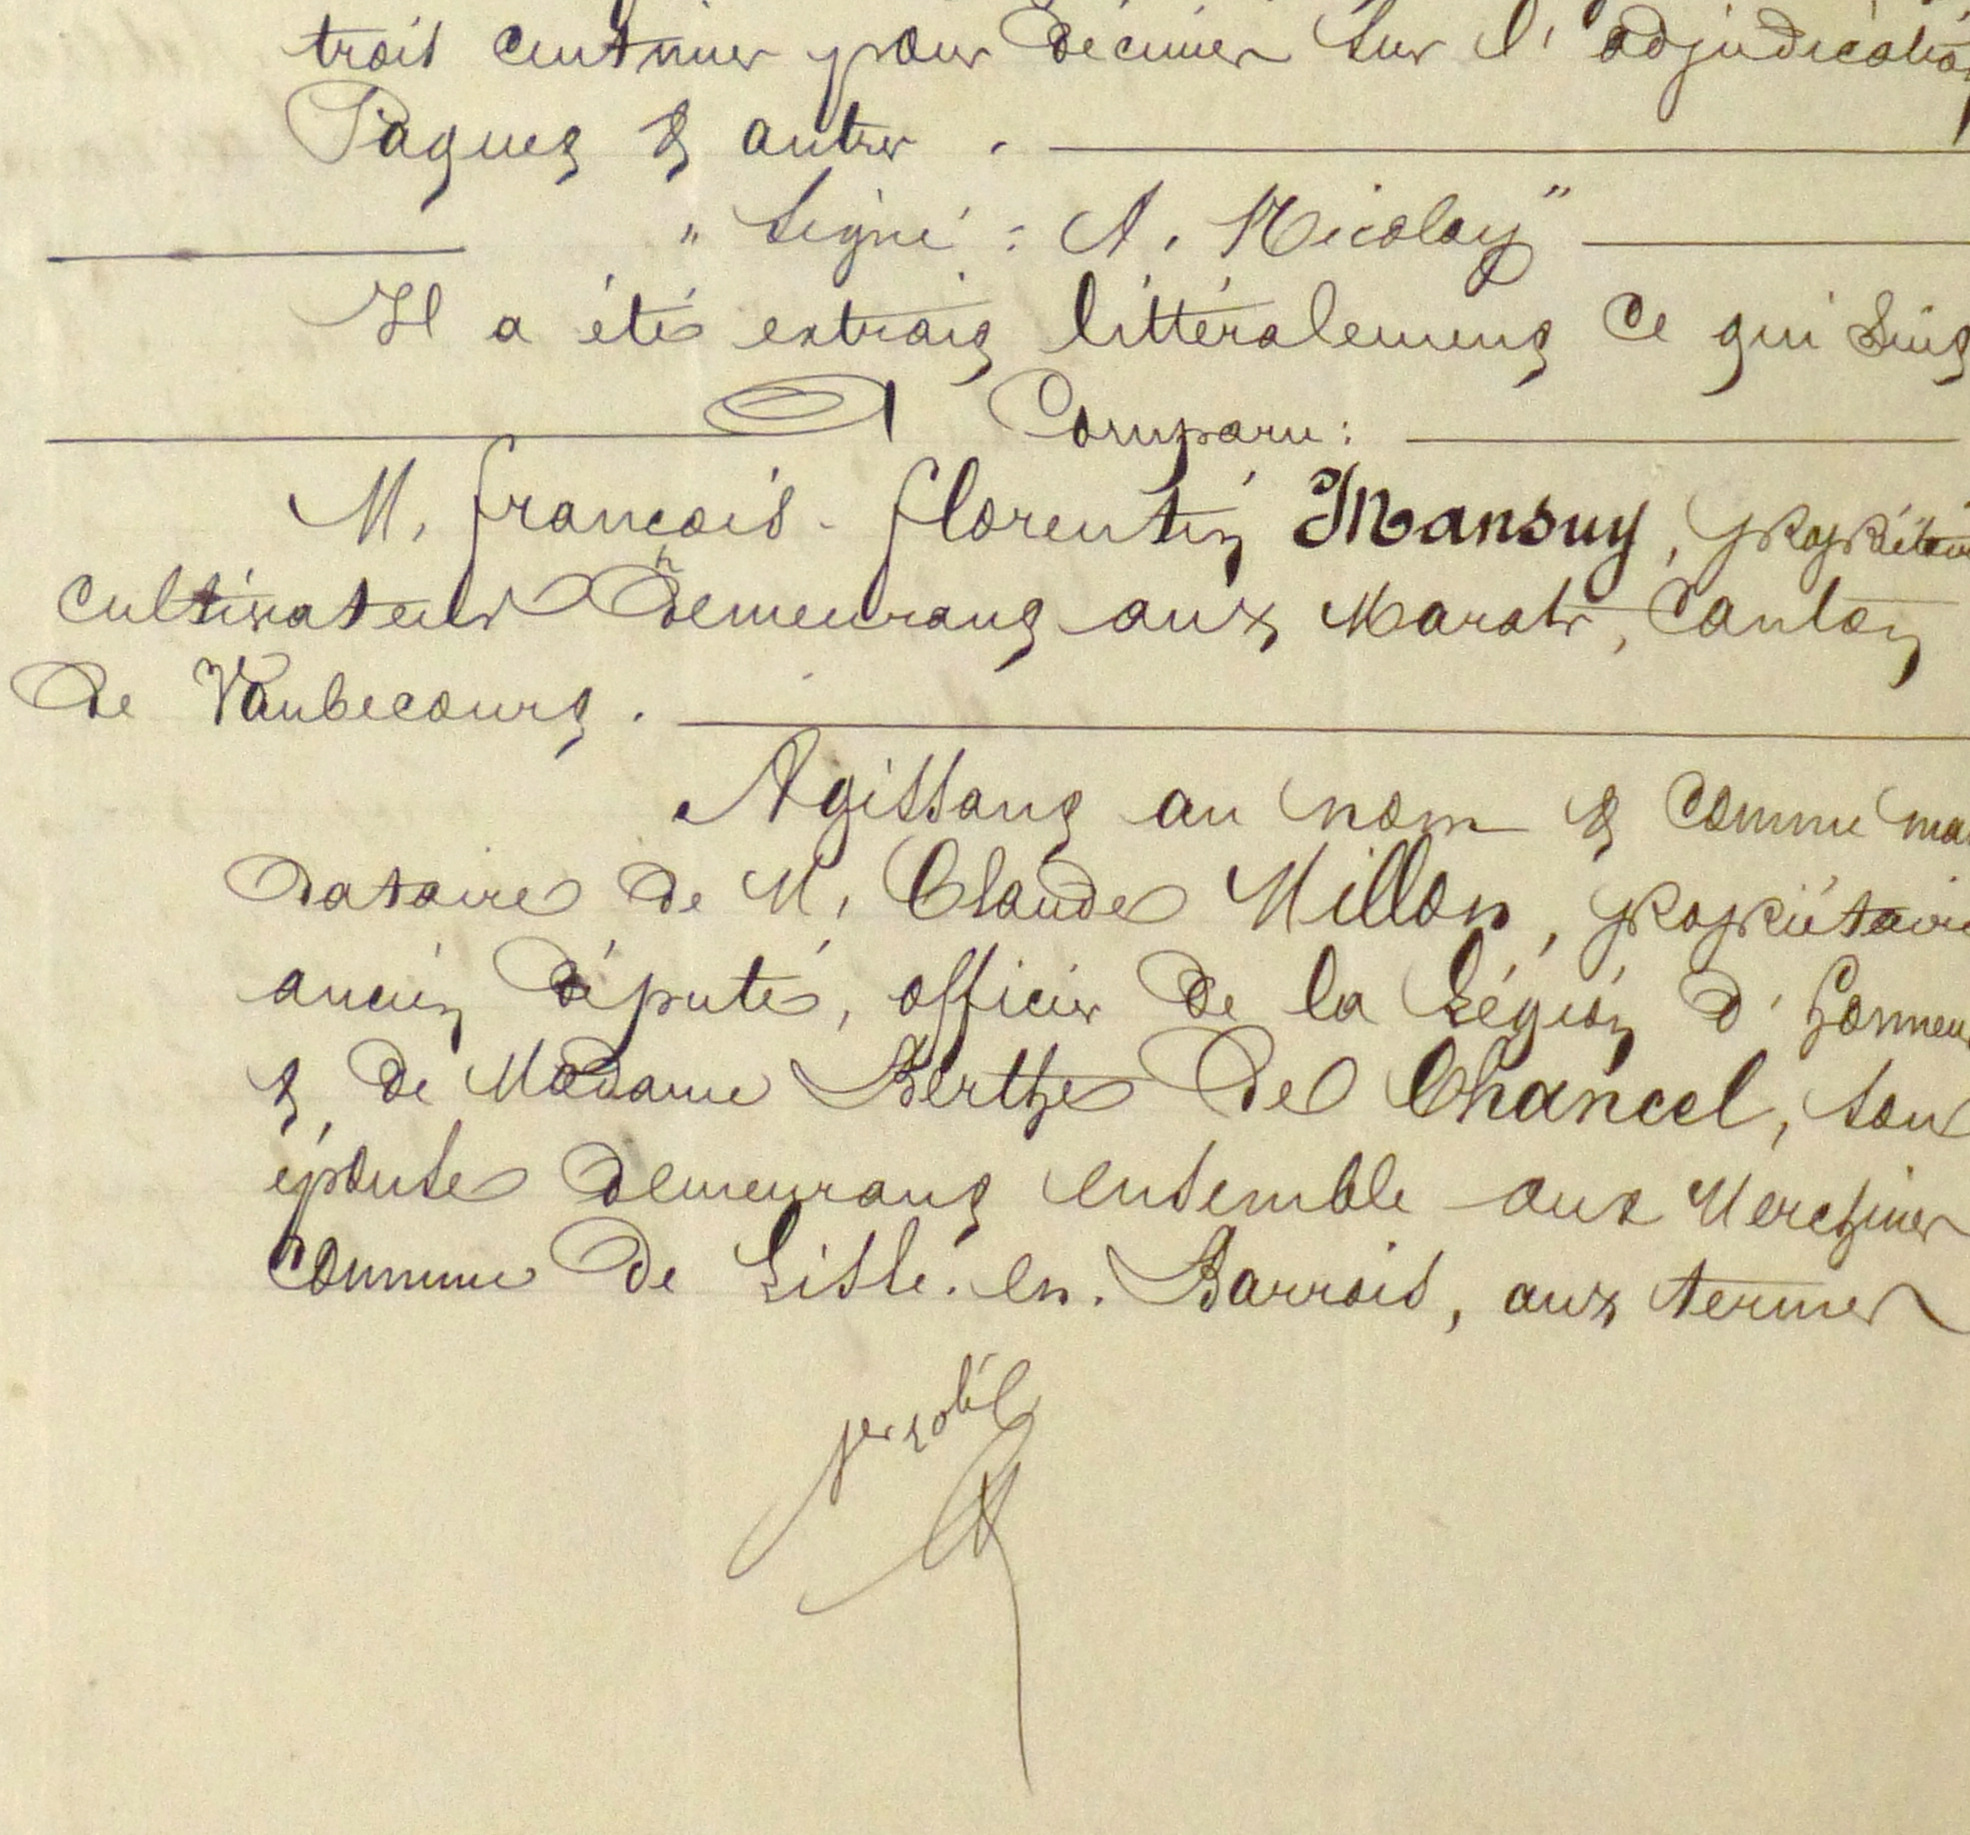 trois centimes pour décimes sur l'adjudication
Paquez & autres.
"Signé: A. Nicolay"
Il a été extrait littéralement ce qui suit
A Comparu:
M. François-Florentin Mansuy, propriétaire
cultivateur demeurant aux Marats, canton
de Vaubecourt.
Agissant au nom & comme man
dataire de M. Claude Millon, propriétaire
ancien député, officier de la Légion d'honneur
& de Madame Berthe de Chancel, son
épouse demeurant ensemble aux Merchines
commune de Lisle-en-Barrois, aux termes